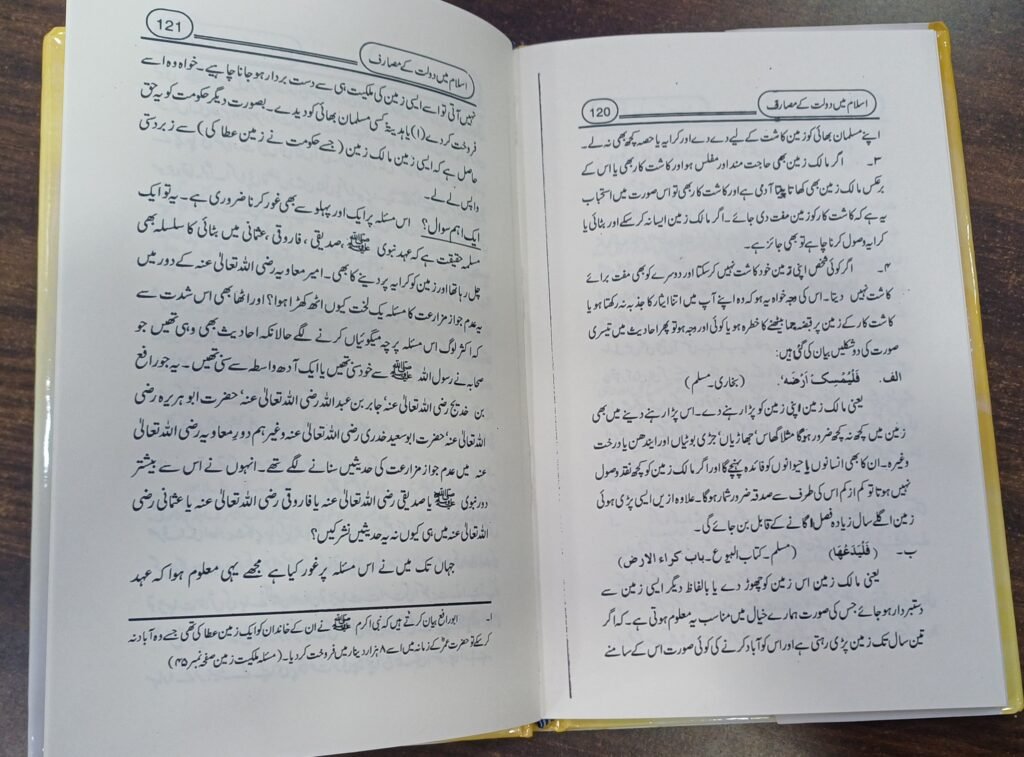 120
اسلام میں دولت کے مصارف
اپنے مسلمان بھائی کو زمین کاشت کے لیے دے دے اور کرایہ یا حصہ کچھ بھی نہ لے۔
۳۔ اگر مالک زمین بھی حاجت مند اور مفلس ہو اور کاشت کار بھی یا اس کے
برعکس مالک زمین بھی کھاتا پیتا آدمی ہے اور کاشت کار بھی تو اس صورت میں استحباب
یہ ہے کہ کاشت کار کو زمین مفت دی جائے۔ اگر مالک زمین ایسا نہ کر سکے اور بٹائی یا
کرایہ وصول کرنا چاہے تو بھی جائز ہے۔
۴۔ اگر کوئی شخص اپنی زمین خود کاشت نہیں کر سکتا اور دوسرے کو بھی مفت برائے
کاشت نہیں دیتا۔ اس کی وجہ خواہ یہ ہو کہ وہ اپنے آپ میں اتنا ایثار کا جذبہ نہ رکھتا ہو یا
کاشت کار کے زمین پر قبضہ جما بیٹھنے کا خطرہ ہو یا کوئی اور وجہ ہو تو پھر احادیث میں تیسری
صورت کی دو شکلیں بیان کی گئی ہیں:
الف۔ فَلْيُمْسِكْ اَرْضَه‘۔ (بخاری۔ مسلم)
یعنی مالک زمین اپنی زمین کو پڑا رہنے دے۔ اس پڑا رہنے دینے میں بھی
زمین میں کچھ نہ کچھ ضرور ہوگا مثلاً گھاس‘ جھاڑیاں‘ جڑی بوٹیاں اور ایندھن یا درخت
وغیرہ۔ ان کا بھی انسانوں یا حیوانوں کو فائدہ پہنچے گا اور اگر مالک زمین کو کچھ نقد وصول
نہیں ہوتا تو کم از کم اس کی طرف سے صدقہ ضرور شمار ہوگا۔ علاوہ ازیں ایسی پڑی ہوئی
زمین اگلے سال زیادہ فصل اگانے کے قابل بن جائے گی۔
ب۔ (فَلْيَدَعْهَا) (مسلم۔ کتاب البیوع۔ باب کراء الارض)
یعنی مالک زمین اس زمین کو چھوڑ دے یا بالفاظ دیگر ایسی زمین سے
دستبردار ہو جائے جس کی صورت ہمارے خیال میں مناسب یہ معلوم ہوتی ہے۔ کہ اگر
تین سال تک زمین پڑی رہتی ہے اور اس کو آباد کرنے کی کوئی صورت اس کے سامنے
121
اسلام میں دولت کے مصارف
نہیں آتی تو اسے ایسی زمین کی ملکیت ہی سے دست بردار ہو جانا چاہیے۔ خواہ وہ اسے
فروخت کر دے (۱) یا ہدیۃً کسی مسلمان بھائی کو دیدے۔ بصورت دیگر حکومت کو یہ حق
حاصل ہے کہ ایسی زمین مالک زمین (جسے حکومت نے زمین عطا کی) سے زبردستی
واپس لے لے۔
ایک اہم سوال؟ اس مسئلہ پر ایک اور پہلو سے بھی غور کرنا ضروری ہے۔ یہ تو ایک
مسلمہ حقیقت ہے کہ عہد نبوی ﷺ، صدیقی، فاروقی، عثمانی میں بٹائی کا سلسلہ بھی
چل رہا تھا اور زمین کو کرایہ پر دینے کا بھی۔ امیر معاویہ رضی اللہ تعالیٰ عنہ کے دور میں
یہ عدم جواز مزارعت کا مسئلہ یک لخت کیوں اٹھ کھڑا ہوا؟ اور اٹھا بھی اس شدت سے
کہ اکثر لوگ اس مسئلہ پر چہ میگوئیاں کرنے لگے حالانکہ احادیث بھی وہی تھیں جو
صحابہ نے رسول اللہ ﷺ سے خود سنی تھیں یا ایک آدھ واسطہ سے سنی تھیں۔ یہ جو رافع
بن خدیج رضی اللہ تعالیٰ عنہ‘ جابر بن عبداللہ رضی اللہ تعالیٰ عنہ‘ حضرت ابو ہریرہ رضی
اللہ تعالیٰ عنہ‘ حضرت ابو سعید خدری رضی اللہ تعالیٰ عنہ وغیرہم دور معاویہ رضی اللہ تعالیٰ
عنہ میں عدم جواز مزارعت کی حدیثیں سنانے لگے تھے۔ انہوں نے اس سے بیشتر
دور نبوی ﷺ یا صدیقی رضی اللہ تعالیٰ عنہ یا فاروقی رضی اللہ تعالیٰ عنہ یا عثمانی رضی
اللہ تعالیٰ عنہ میں ہی کیوں نہ یہ حدیثیں نشر کیں؟
جہاں تک میں نے اس مسئلہ پر غور کیا ہے مجھے یہی معلوم ہوا کہ عہد
۱۔ ابو رافع بیان کرتے ہیں کہ نبی اکرم ﷺ نے ان کے خاندان کو ایک زمین عطا کی تھی جسے وہ آباد نہ
کر سکے تو حضرت عمرؓ کے زمانہ میں اسے ۸ ہزار دینار میں فروخت کر دیا۔ (مسئلہ ملکیت زمین صفحہ نمبر ۴۵)